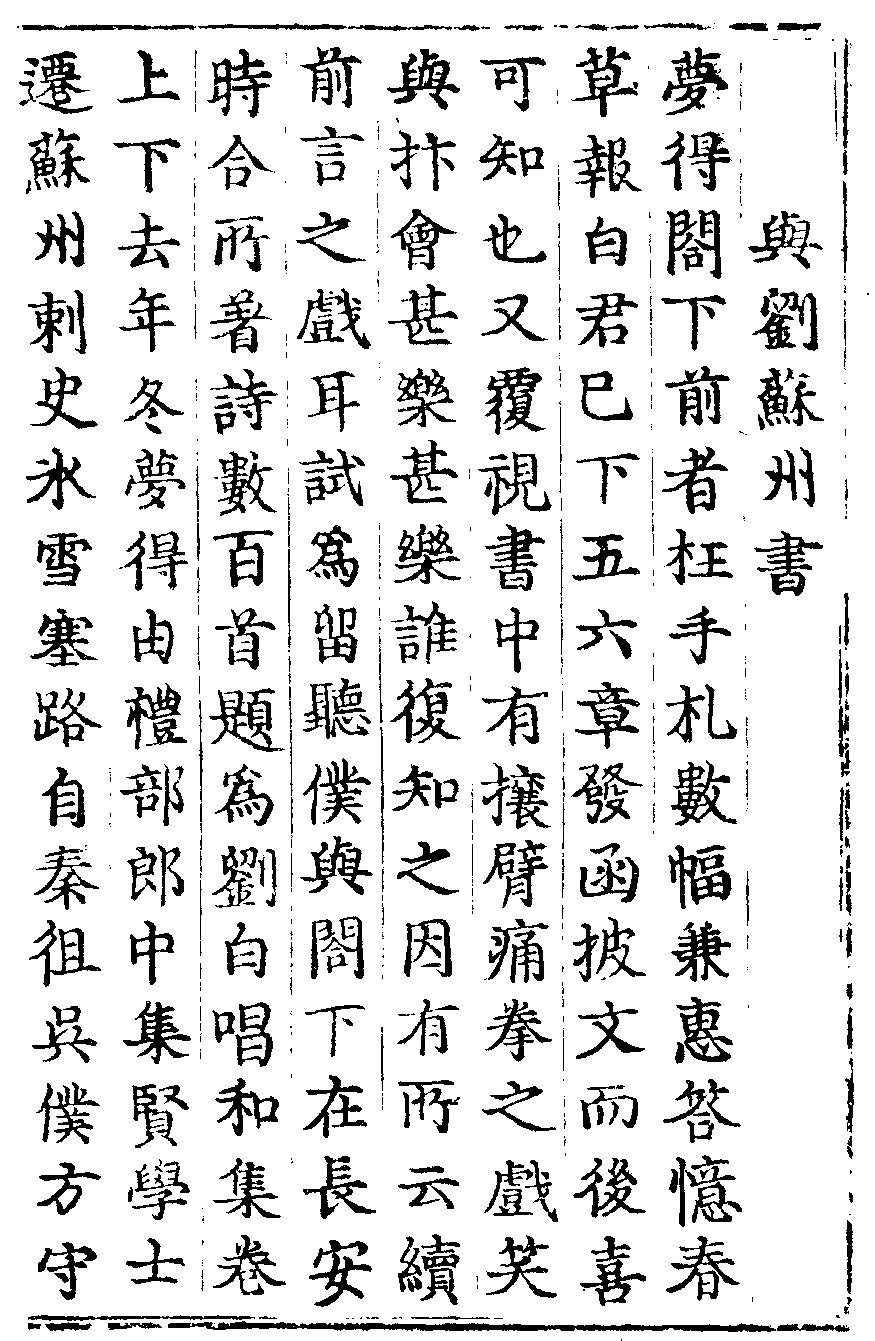 與劉蘇州書
夢得閤下前者枉手札數幅兼惠答憶春
草報白君已下五六章發函披文而後喜
可知也又覆視書中有攘臂痛拳之戲笑
與抃會甚樂甚樂誰復知之因有所云續
前言之戲耳試為留聽僕與閤下在長安
時合所著詩數百首題為劉白唱和集卷
上下去年冬夢得由禮部郎中集賢學士
遷蘇州刺史氷雪塞路自秦徂吳僕方守